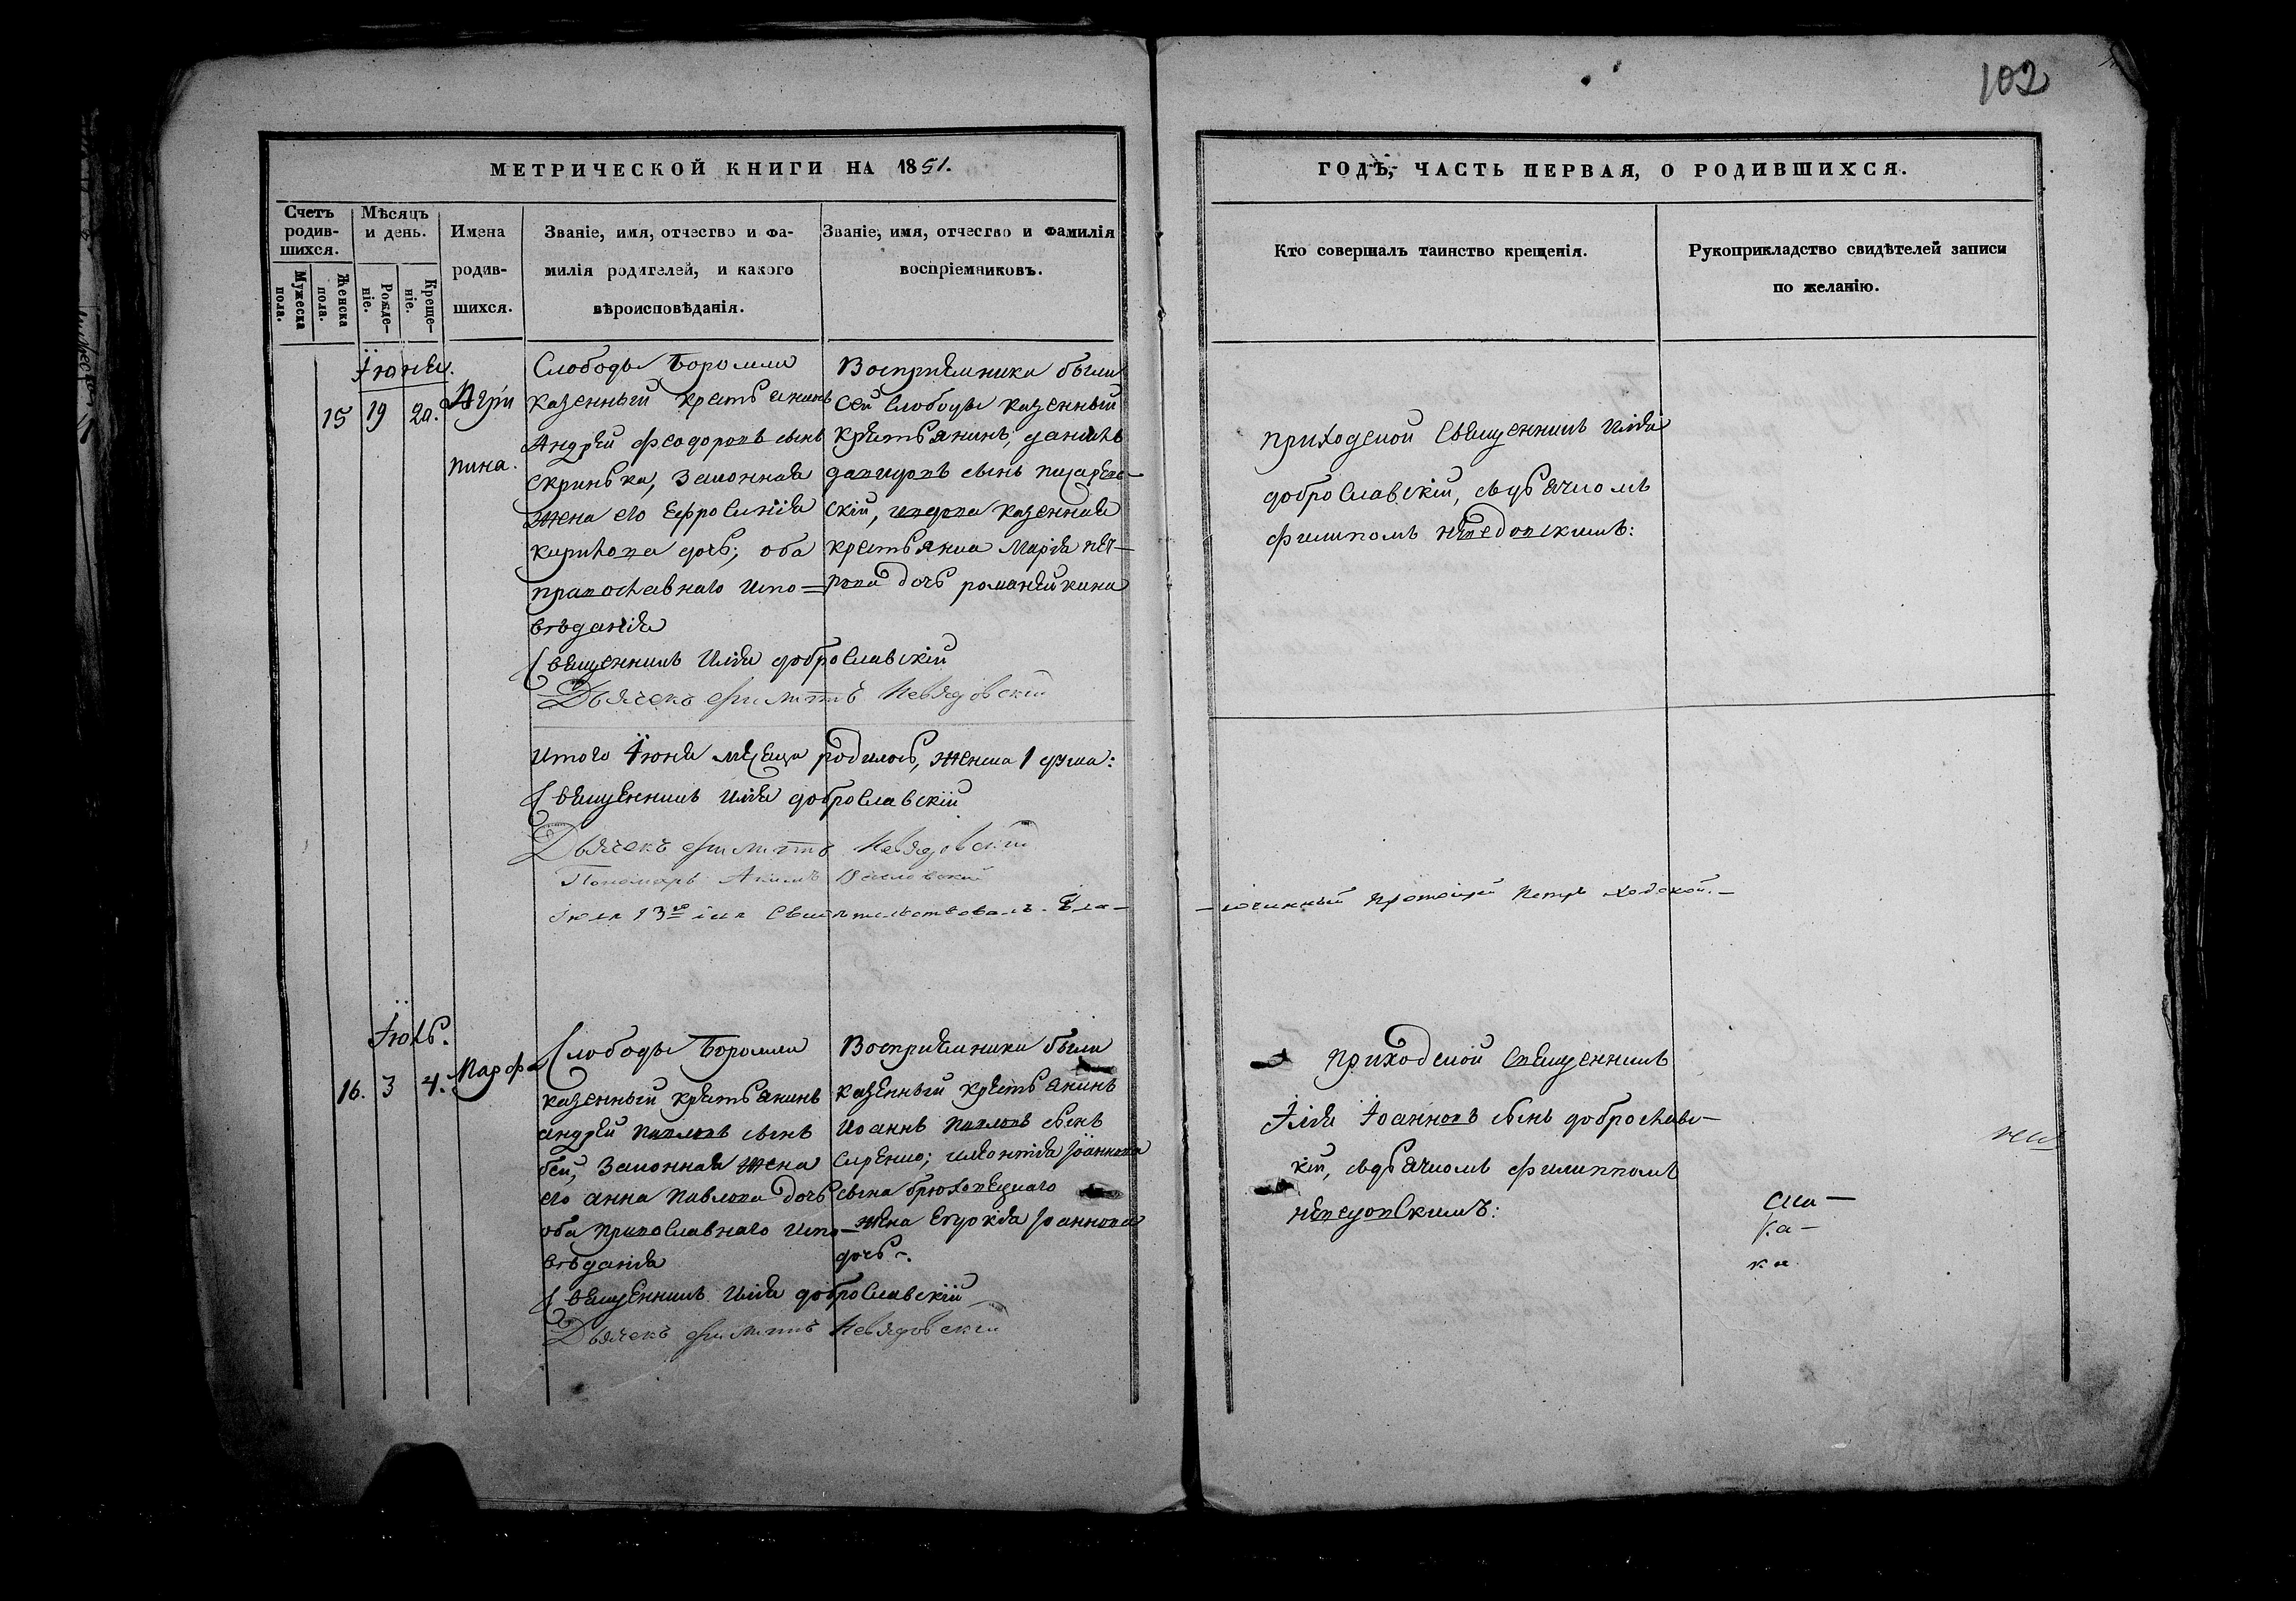 102
МЕТРИЧЕСКОЙ КНИГИ НА 1851.
ГОДЪ, ЧАСТЬ ПЕРВАЯ, О РОДИВШИХСЯ.
Счетъ родив-шихся.
Мужеска пола.
Женска пола.
Мѣсяцъ и день.
Рожде-ніе.
Креще-ніе.
Имена
родив-
шихся.
Званіе, имя, отчество и фа-
милія родителей, и какого
вѣроисповѣданія.
Званіе, имя, отчество и фамилія
воспріемниковъ.
Кто совершалъ таинство крещенія.
Рукоприкладство свидѣтелей записи
по желанію.
Іюня.
15 19 20.
Агри
пина.
Слободы Боромли
казенный крестьянинъ
Андрей Феодоровъ сынъ
Скринька, законная
жена его Ефросинія
Кирилова дочь; оба
православнаго испо=
вѣданія
Священникъ Илія Доброславскій
Дьячекъ Филиппъ Невядовскій
Восприемники были
сей слободы казенный
крестьянинъ, Данилъ
Давидовъ сынъ
скій, вдова казенная
крестьянка Марія Пет-
рова дочь Романейкина
приходской священникъ Илія
Доброславскій, съ дьячкомъ
Филипомъ Неведовскимъ:
Итого Іюня месяца родилось, женска 1 душа:
Священникъ Илія Доброславскій
Дьячекъ Филиппъ Невядовскій
Пономарь Акимъ
Іюля 13го дня свидѣтельствовалъ. Бла-
-гочинный Протоіерей Петръ Ходской.-
Іюль.
16. 3 4.
Марфа
Слободы Боромли
казенный крестьянинъ
Андрей Павловъ сынъ
Бей, законная жена
его Анна Павлова дочь
оба православнаго испо-
вѣданія
Священникъ Илія Доброславскій
Дьячекъ Филиппъ Невядовскій
Восприемники были
казенный крестьянинъ
Иоаннъ Павловъ сынъ
Іоаннова
сына
жена Евдокія Іоаннова
дочь.
приходской священникъ
Ілія Іоанновъ сынъ Доброславс-
кій, съ дьячкомъ Филиппомъ
Неведовскимъ:
ка-
ка.